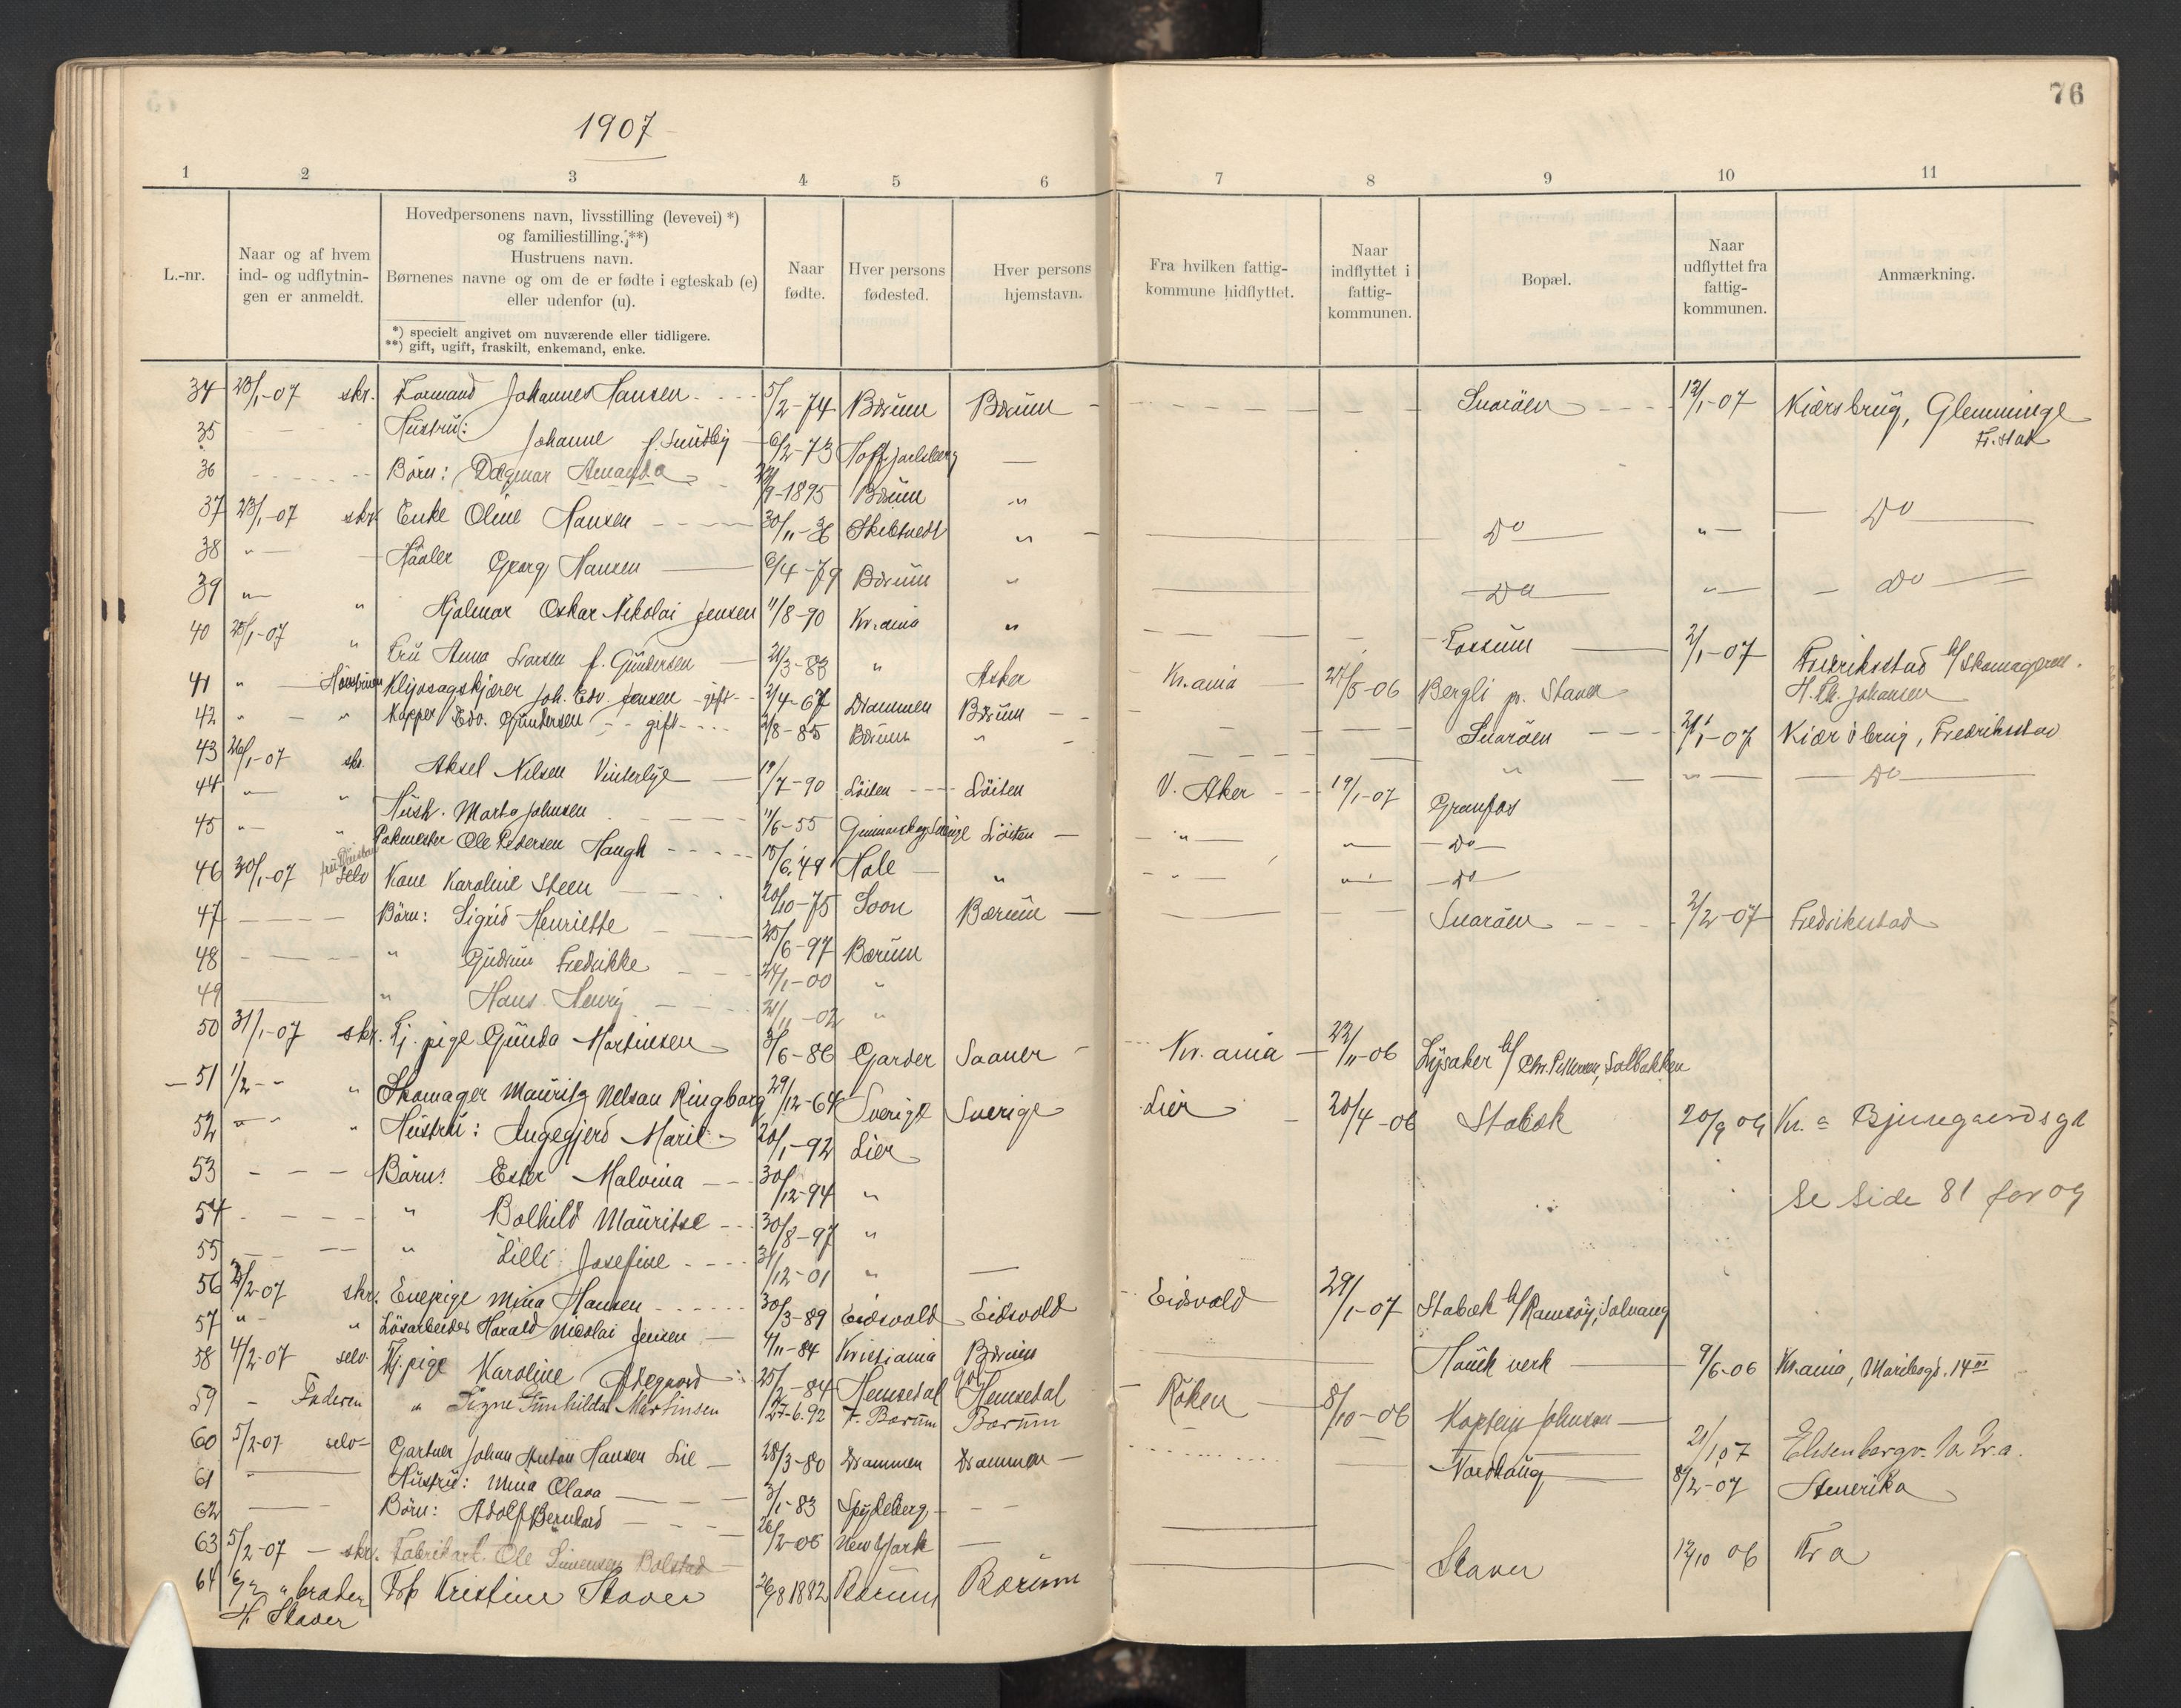 76
1907
1 2 3 4 5 6 7 8 9 10 11
L.-nr.
Naar og af hvem
ind- og udflytnin-
gen er anmeldt.
Hovedpersonens navn, livsstilling (levevei) *)
og familiestilling. **)
Hustruens navn.
Børnenes navne og om de er fødte i egteskab (e)
eller udenfor (u).
*) specielt angivet om nuværende eller tidligere.
**) gift, ugift, fraskilt, enkemand, enke.
Naar
fødte.
Hver persons
fødested.
Hver persons
hjemstavn.
Fra hvilken fattig-
kommune hidflyttet.
Naar
indflyttet i
fattig-
kommunen.
Bopæl.
Naar
udflyttet fra
fattig-
kommunen.
Anmærkning.
34 23/1-07 skr. Formand Johannes Hansen 5/2-74 Bærum Bærum Snarøen 12/1-07 Kiærsbrug, Glemminge
Fr.stad
35 Hustru: Johanne f. Sundby 6/2-73 Hof Jarlsberg
36 Børn: Dagmar Amanda /9-1895 Bærum "
37 23/1-07 skr Enke Oline Hansen 30/11-36 Skibtvedt " Do " Do
38 " Høvler Georg Hansen 6/4-79 Bærum " Do " Do
39 " " Hjalmar Oskar Nikolai Jensen 11/8-90 Kr.ania " Fossum 2/1-07 Fredriksstad b/ Skomagerm.
H. Th. Johansen
40 25/1-07 " Fru Anna Larsen f. Gundersen 21/3-83 " Asker Kr.ania 24/5-06 Bergli pr. Staver
41 " Klipsagskjærer Joh. Edv. Jensen gift 2/4-67 Drammen Bærum Snarøen 21/1-07 Kiærs brug, Fredriksstad
42 " " Kapper Edv. Gundersen gift 2/8-85 Bærum " " " Do
43 26/1-07 skr. Aksel Nilsen Vinterlye 19/7-90 Løiten Løiten V. Aker 19/1-07 Granfos
44 " " Hush. Marta Johnsen 11/6-55 Løiten " " Do
45 " " Pakmester Ole Pedersen Haugh 18/6-49 Hole " " " Do
46 30/1-07 selv Kone Karoline Steen 20/10-75 Soon Bærum Snarøen 2/2-07 Fredrikstad
47 Børn: Sigrid Henriette 25/6-97 Bærum
48 " Gudrun Fredrikke 24/1-00 "
49 " Hans Henry 21/11-02 "
50 31/1-07 skr. Tj. pige Gunda Martinsen 3/6-86 Garder Saaner Kr.ania 22/11-06 Lysaker b/ Chr. Pettersen, Solbakken
51 1/2 - " " Skomager Mauritz Nelson Ringborg 29/12-64 Sverige Sverige Lier 20/4-06 Stabæk 20/9 09 Kr.a Bjerregaardsgt
52 " " Hustru: Angegjerd Marie 20/1-92 Lier
53 Børn: Ester Malvina 30/12-94 "
Se Side 81 for 09
54 " Bolhild Mauritse 30/8-97 "
55 " Lilli Josefine 31/12-01 "
56 2/2-07 skr. Enepige Mina Hansen 30/3-89 Eidsvold Eidsvold Eidsvold 29/1-07 Stabæk b/ Ramsøy, Solvang
57 " " Løsarbeider Harald Nicolai Jensen 4/11-84 Kristiania Bærum Hauk verk 9/6-06 Kr.ania, Maribogt. 14 III
58 4/2-07 selv. Tj. pige Karoline Ødegaard 25/2-84 Hemsedal Hemsedal Røken 8/10-06 Kaptein Johnson
59 - Faderen " Signe Gunhilda Martinsen 27-6.92 V. Bærum Bærum 21/1 07 Elisenbergv. Kr.a.
60 5/2-07 selv Gartner Johan Anton Hansen Lie 28/3-80 Drammen Drammen Nordhaug 8/2-07 Amerika
61 " Hustru: Mina Olava 3/1-83 Spydeberg
62 Børn: Adolf Bernhard 26/2-06 New York
63 5/2-07 skr. Fabrikarb. Ole Simensen Bolstad Staver 12/10 06 Kr a
64 6/2 " broder Frk Kristine Staver 26/8 1882 Bærum Bærum
H. Staver